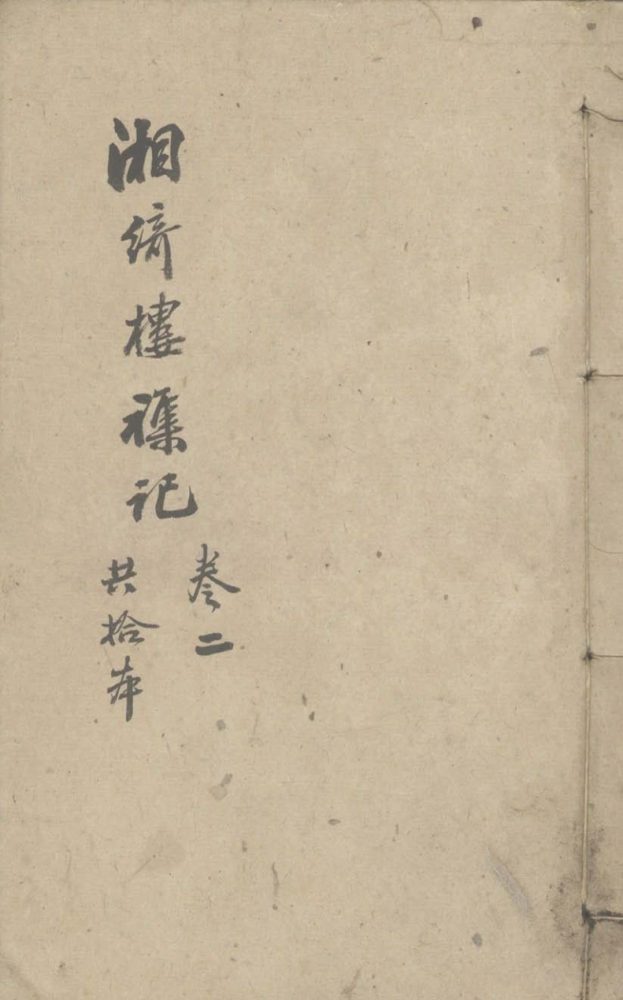 湘綺樓襍記
卷二
共拾本